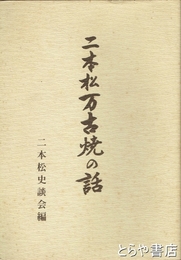 二本松万古焼の話
二本松史談会編
とらや書店